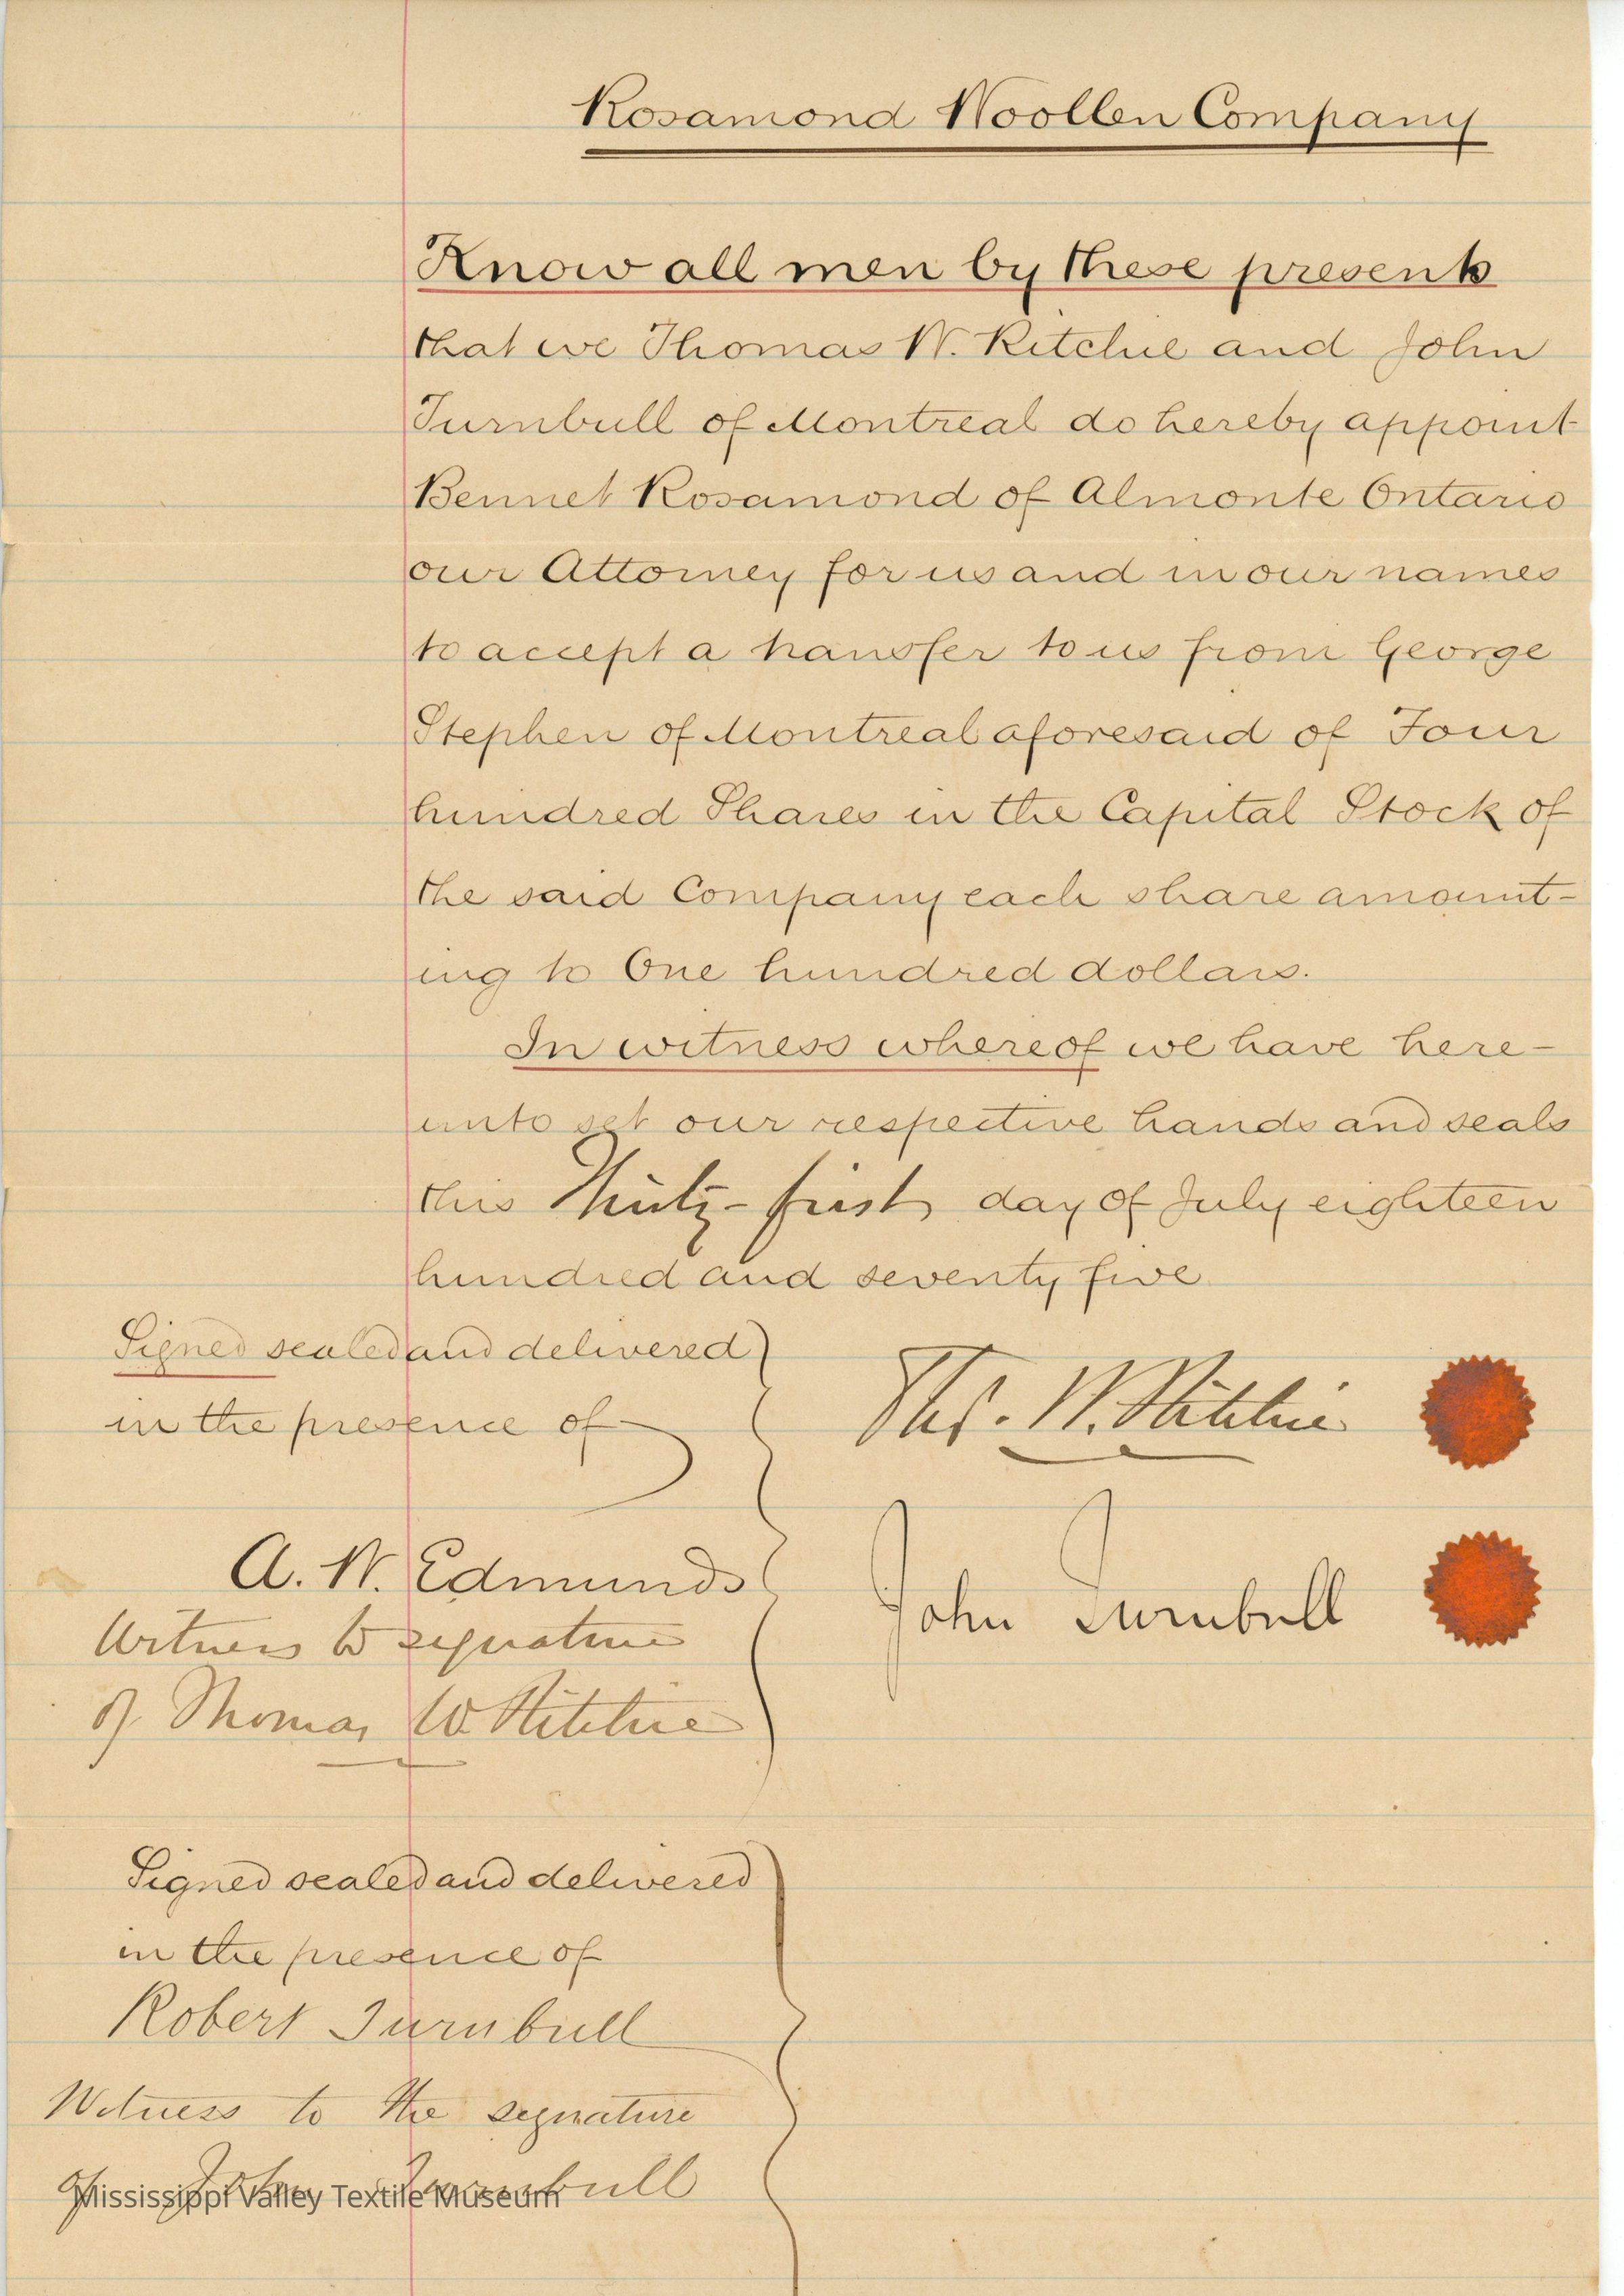 Rosamond Woollen Company
Know all men by these presents
that we Thomas W. Ritchie and John
Turnbull of Montreal do hereby appoint
Bennet Rosamond of Almonte Ontario
our Attorney for us and in our names
to accept a transfer to us from George
Stephen of Montreal aforesaid of Four
hundred Shares in the Capital Stock of
the said Company each share amount-
ing to One hundred dollars.
In witness whereof we have here-
unto set our respective hands and seals
this Thirty-first day of July eighteen
hundred and seventy five
Signed sealed and delivered
in the presence of
Thos. W. Ritchie
A. W. Edmunds
Witness to signature
of Thomas W Ritchie
John Turnbull
Signed sealed and delivered
in the presence of
Robert Turnbull
Witness to the signature
of John Turnbull
Mississippi Valley Textile Museum